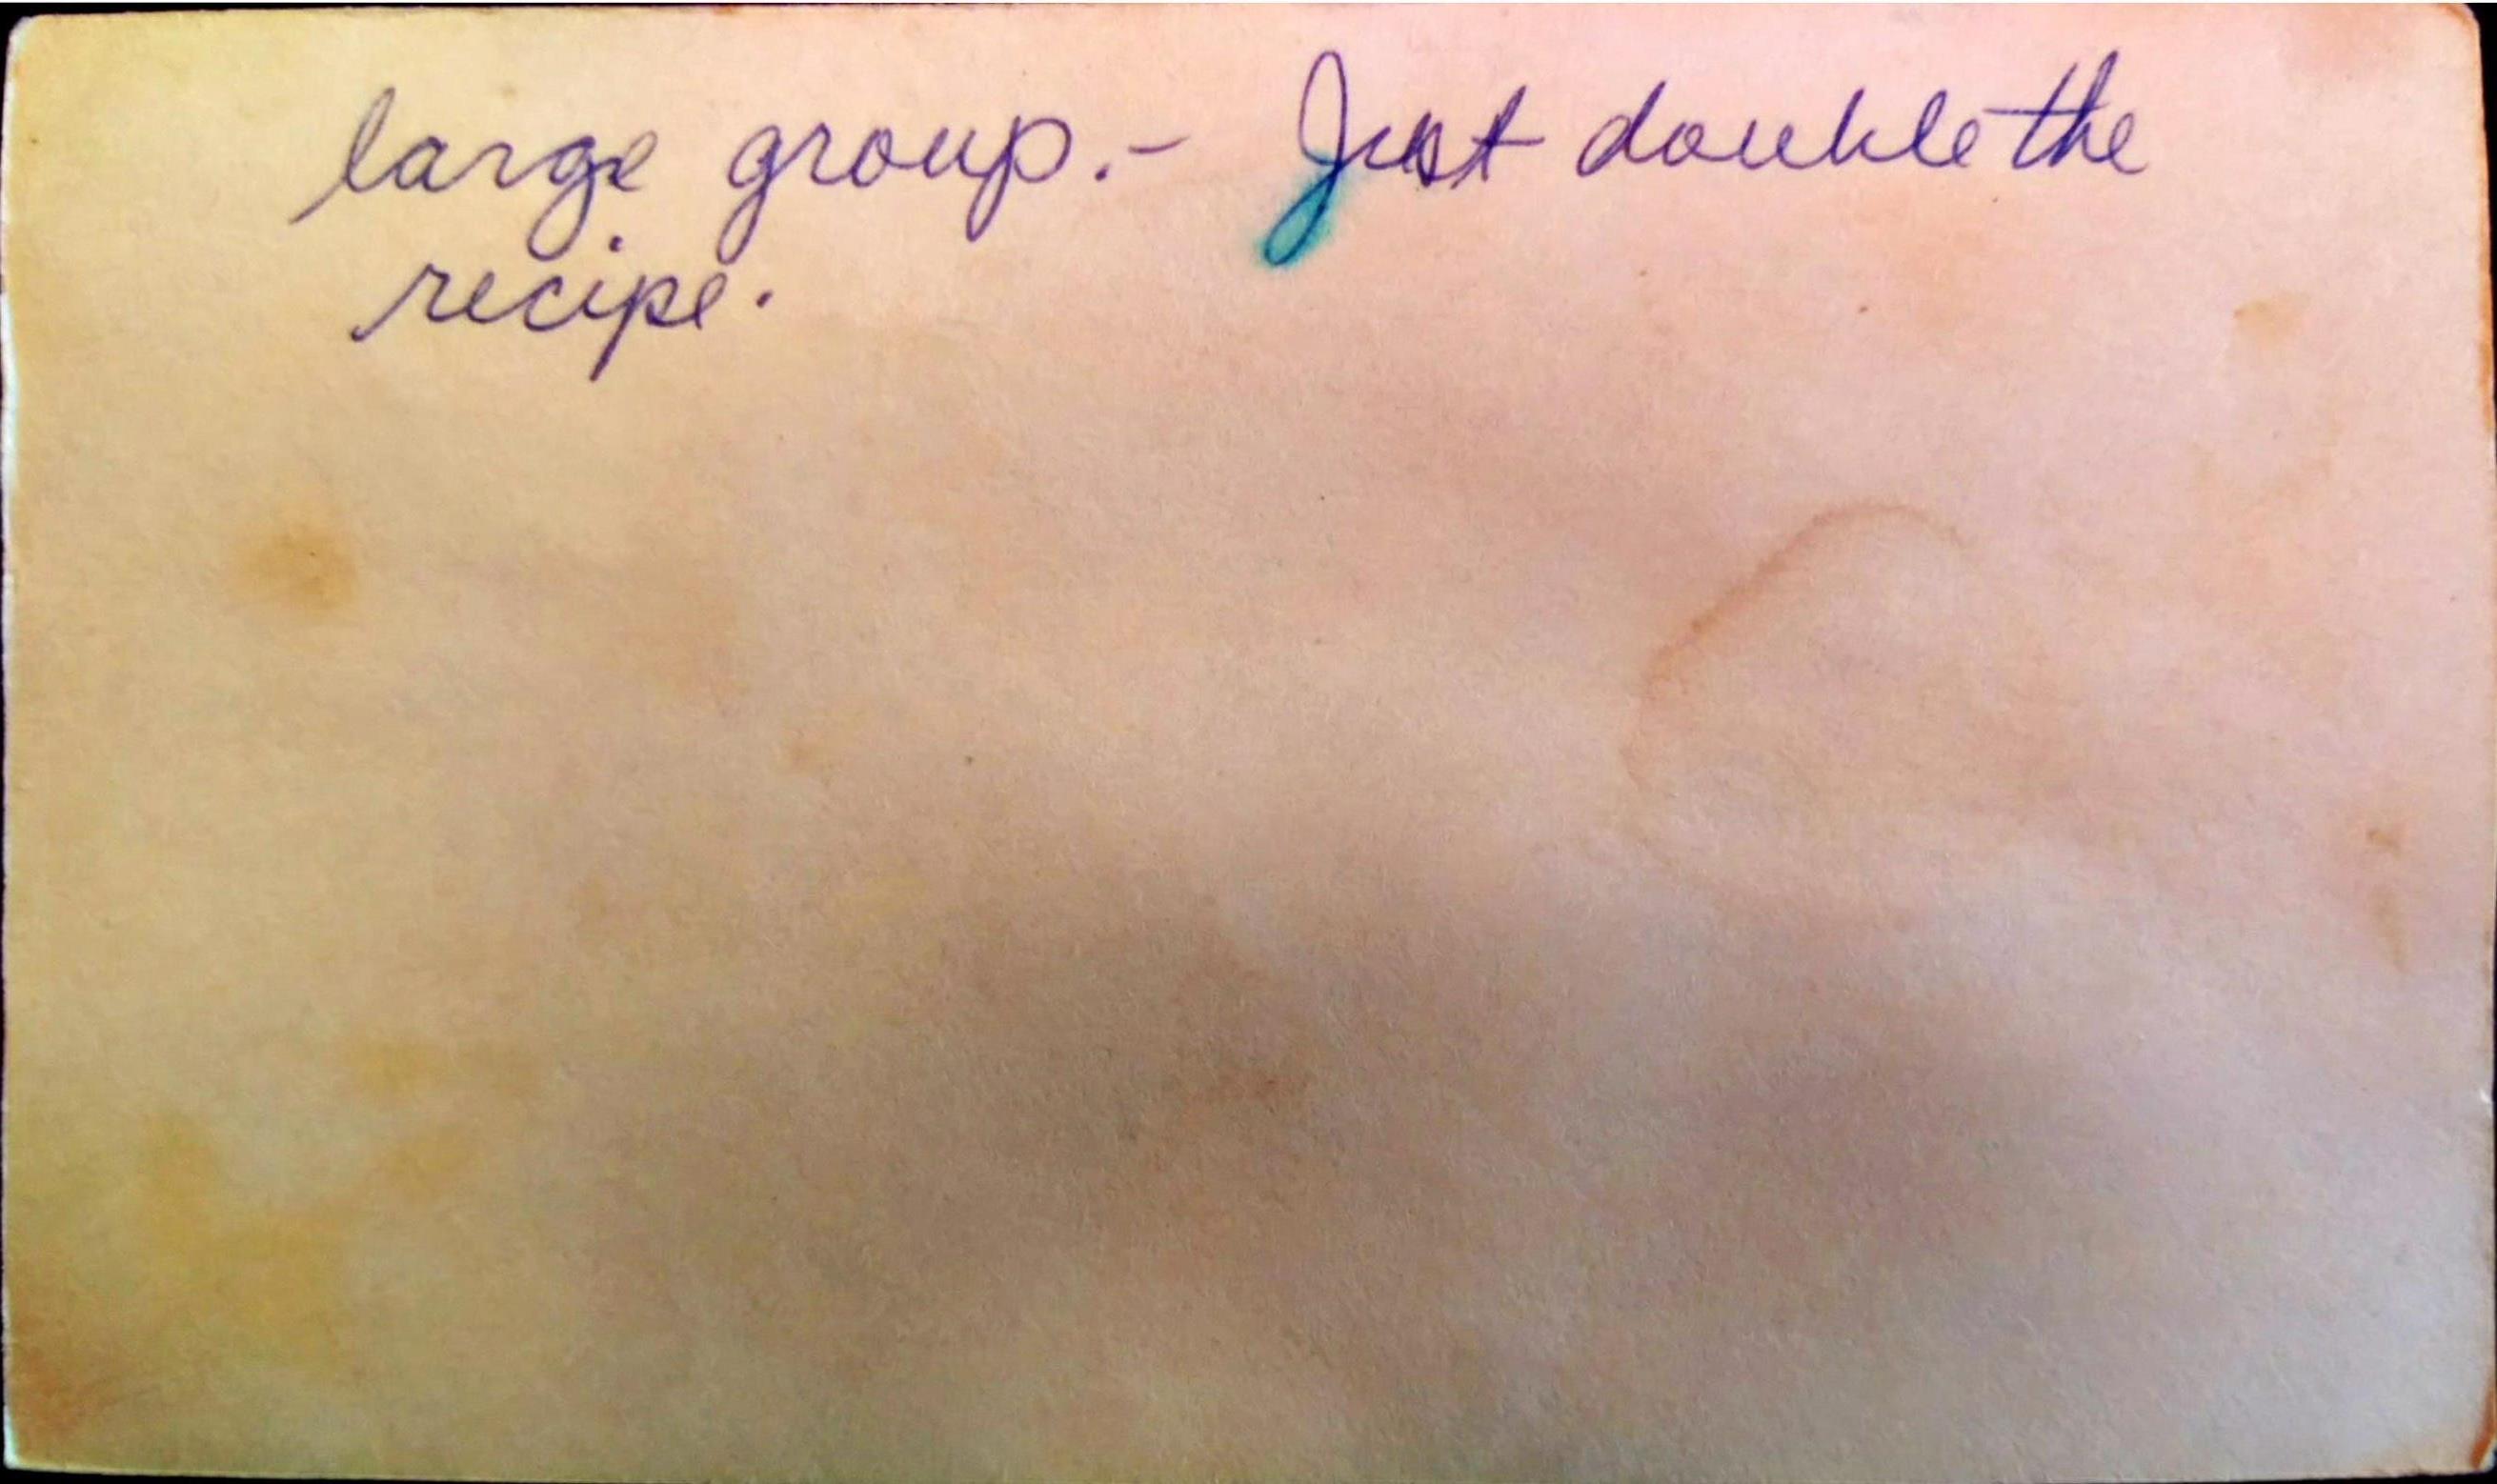 large group.- Just double the
recipe.